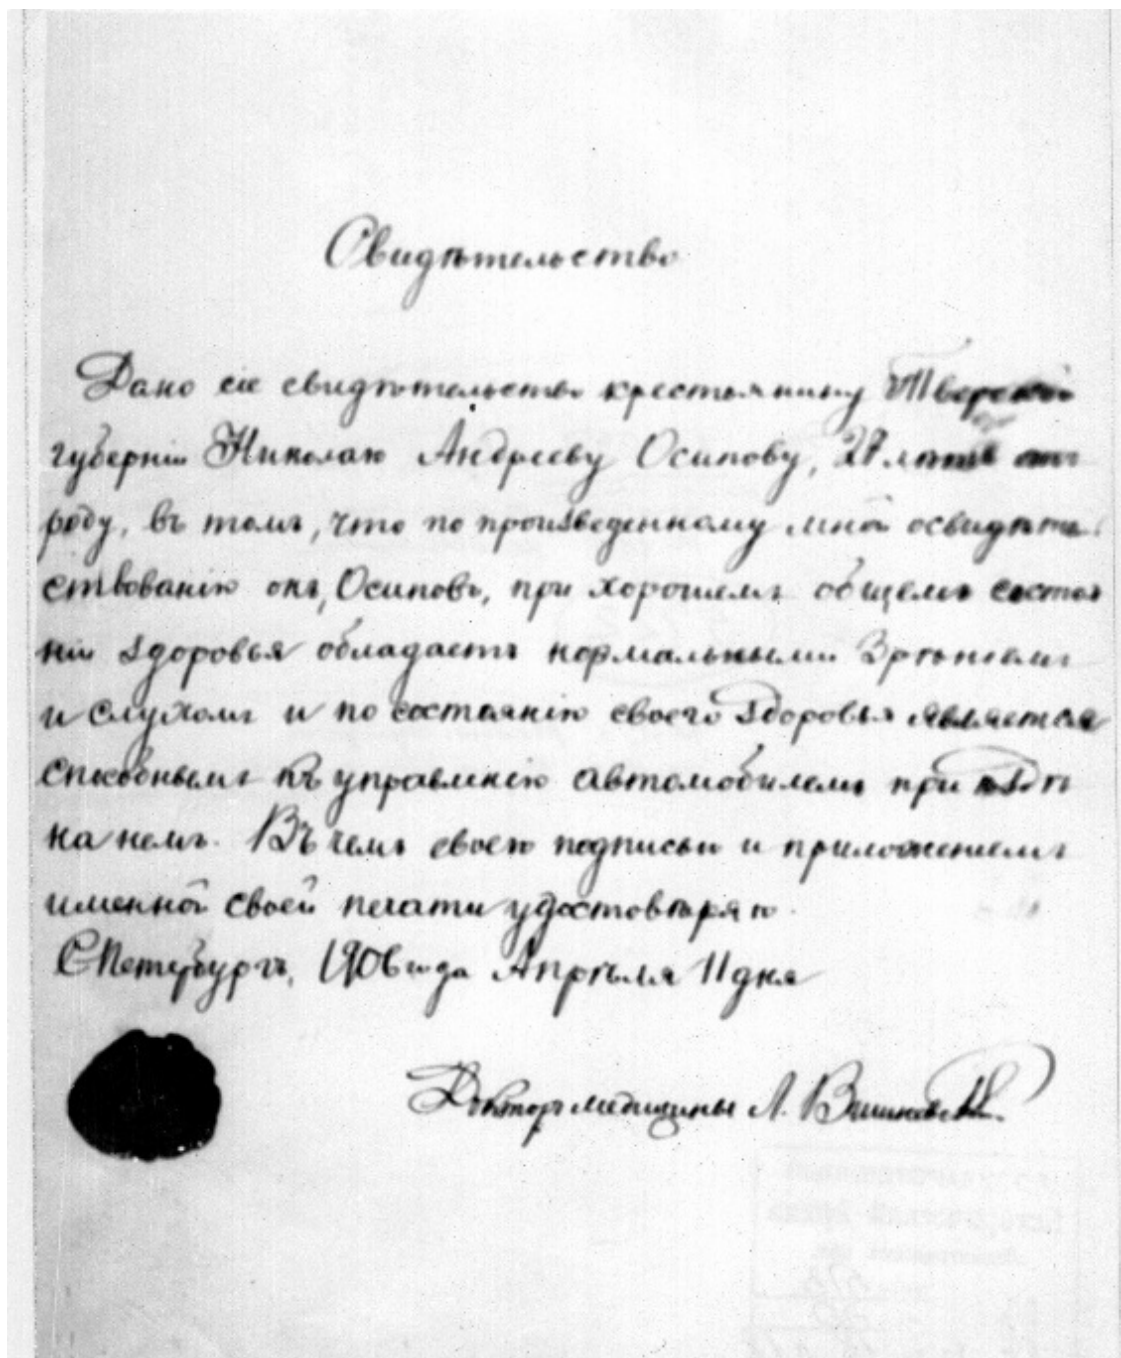 Свидѣтельство
Дано сіе свидѣтельство крестьянину Тверской
губерніи Николаю Андрееву Осипову, лѣтъ отъ
роду, въ томъ, что по произведенному мной освидѣте
ствованію онъ, Осиповъ, при хорошемъ общемъ состоя
ніи здоровья обладаетъ нормальными зрѣніемъ
и слухомъ и по состоянію своего здоровья является
способнымъ къ управленію автомобилемъ при ѣздѣ
на немъ. Въ чемъ своею подписью и приложеніемъ
именной своей печати удостовѣряю.
СПетербургъ, 1906 года Апрѣля 11 дня
Докторъ медицины А.